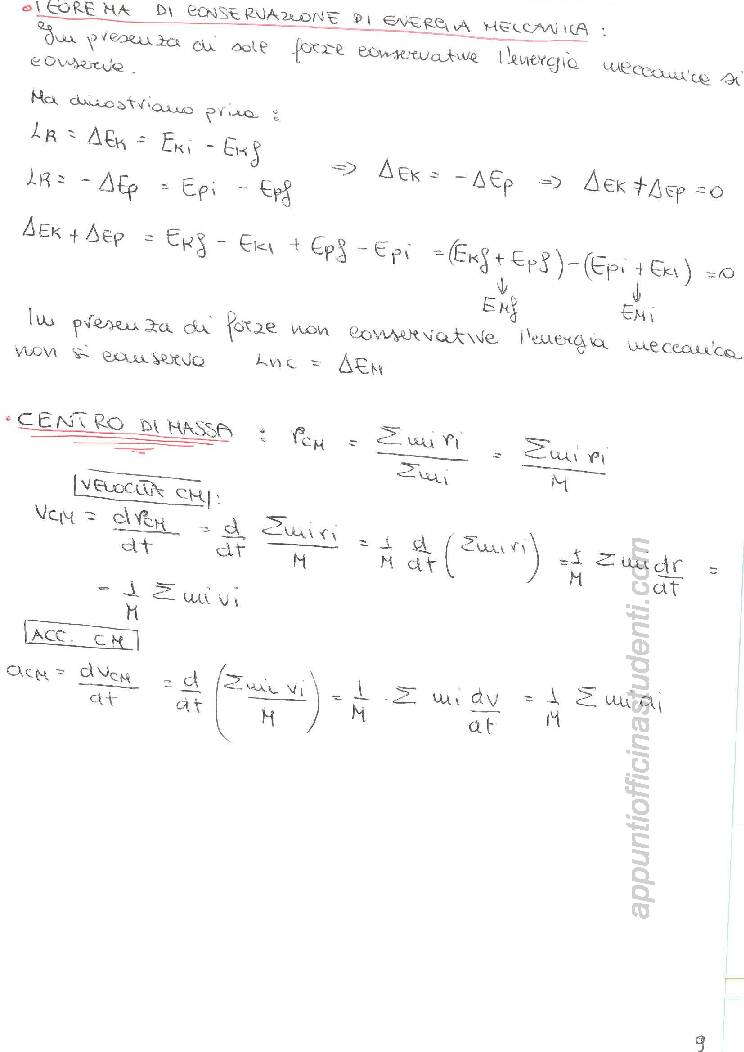 • TEOREMA DI CONSERVAZIONE DI ENERGIA MECCANICA :
In presenza di sole forze conservative l'energia meccanica si
conserva.
Ma dimostriamo prima :
LR = ΔEK = EKi - EKf
LR = - ΔEp = Epi - Epf
⇒ ΔEK = - ΔEp ⇒ ΔEK + ΔEp = 0
ΔEK + ΔEP = EKf - EKi + Epf - Epi = (EKf + Epf) - (Epi + EKi) = 0
↓ ↓
EMf EMi
In presenza di forze non conservative l'energia meccanica
non si conserva Lnc = ΔEM
• CENTRO DI MASSA : rCM = Σmiri / Σmi = Σmiri / M
VELOCITÀ CM :
VCM = drCM / dt = d/dt Σmiri / M = 1/M d/dt (Σmiri) = 1/M Σmi dr/dt =
= 1/M Σmivi
ACC. CM
aCM = dVCM / dt = d/dt (Σmi vi / M) = 1/M · Σ mi dv/dt = 1/M Σ miai
appuntiofficinastudenti.com
9